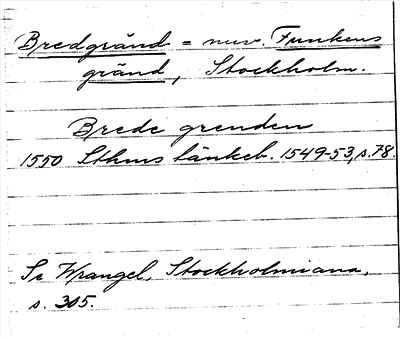 Bredgränd = nuv. Funkens
gränd, Stockholm.
Brede grenden
1550 Sthms tänkeb. 1549-53, s. 78.
Se Wrangel, Stockholmiana,
s. 305.